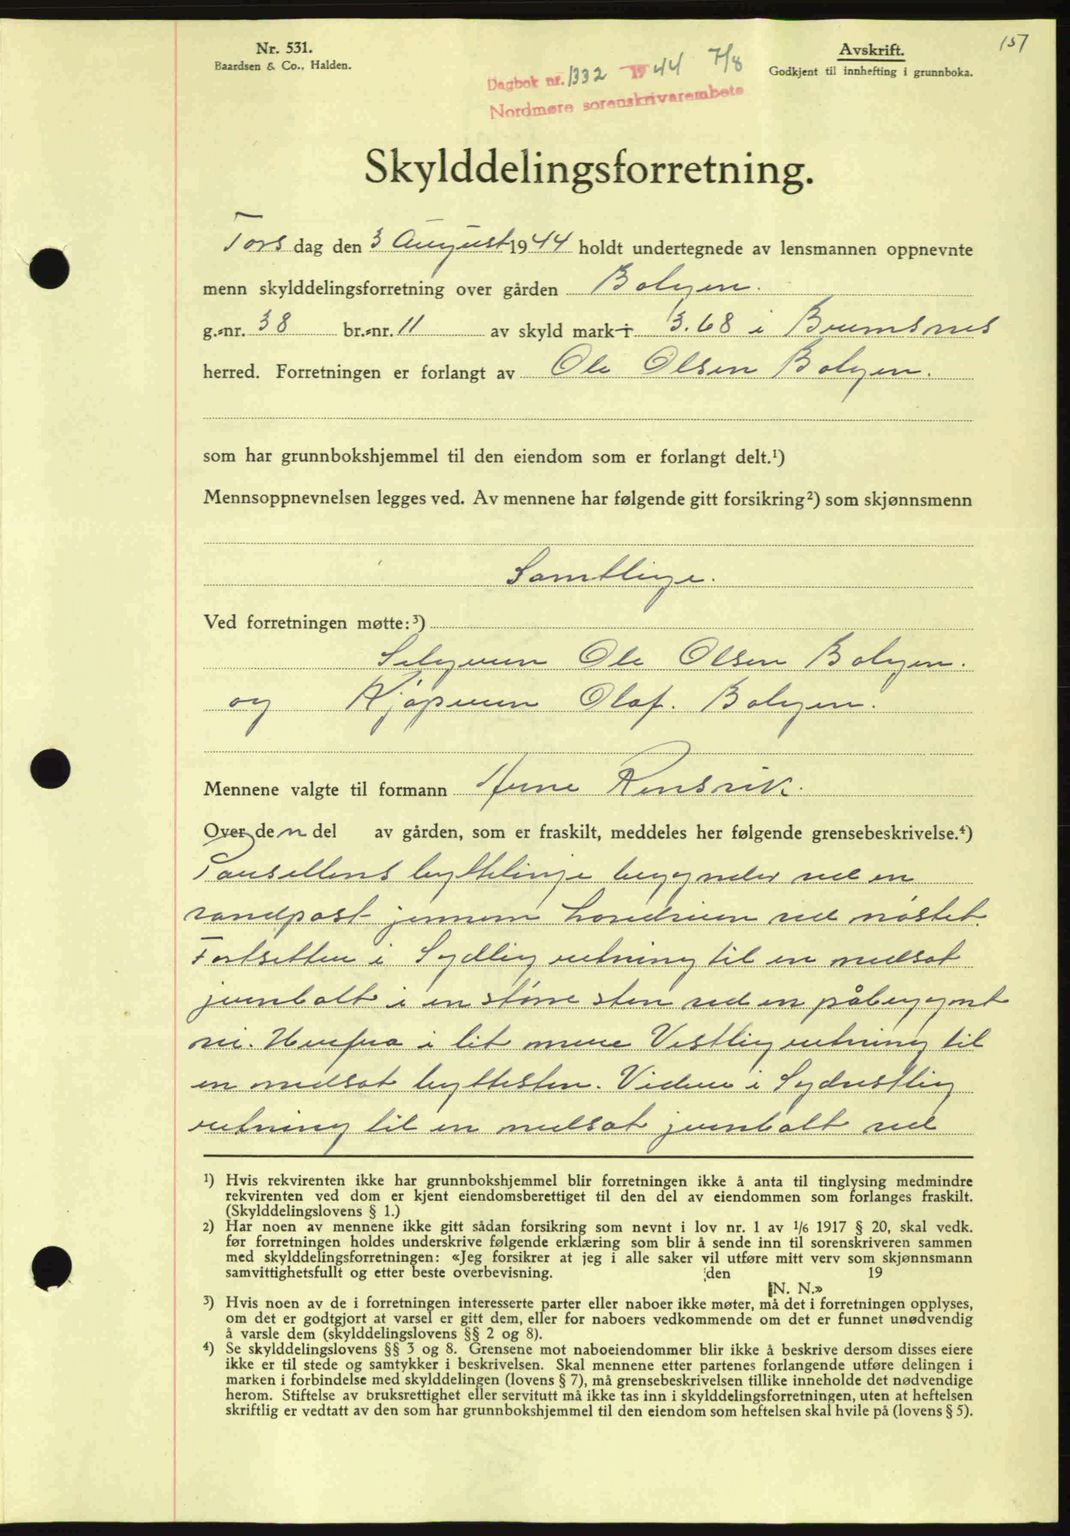 157
Nr. 531.
Baardsen & Co., Halden.
Avskrift.
Godkjent til innhefting i grunnboka.
Dagbok nr. 1332 1944 7/8
Nordmøre sorenskrivarembete
Skylddelingsforretning.
Torsdag den 3 August 1944 holdt undertegnede av lensmannen oppnevnte
menn skylddelingsforretning over gården Bolgen.
g.-nr. 38 br.-nr. 11 av skyld mark i 3.68 i Bremsnes
herred. Forretningen er forlangt av Ole Olsen Bolgen.
som har grunnbokshjemmel til den eiendom som er forlangt delt.¹)
Mennsoppnevnelsen legges ved. Av mennene har følgende gitt forsikring²) som skjønnsmenn
Samtlige.
Ved forretningen møtte:³)
Selgeren Ole Olsen Bolgen.
og Kjøperen Olaf. Bolgen.
Mennene valgte til formann Arne Rensvik.
Over den del av gården, som er fraskilt, meddeles her følgende grensebeskrivelse.⁴)
Parsellens byttelinje begynder ved en
randpost jennem ved nøstet.
Fortsetter i Sydlig retning til en nedsat
jernbolt i en større sten ved en påbegynt
vei. Herfra i lit mere Vestlig retning til
en nedsat byttesten. Videre i Sydvestlig
retning til en nedsat jernbolt ved
¹) Hvis rekvirenten ikke har grunnbokshjemmel blir forretningen ikke å anta til tinglysing medmindre
rekvirenten ved dom er kjent eiendomsberettiget til den del av eiendommen som forlanges fraskilt.
(Skylddelingslovens § 1.)
²) Har noen av mennene ikke gitt sådan forsikring som nevnt i lov nr. 1 av 1/6 1917 § 20, skal vedk.
før forretningen holdes underskrive følgende erklæring som blir å sende inn til sorenskriveren sammen
med skylddelingsforretningen: «Jeg forsikrer at jeg i alle saker vil utføre mitt verv som skjønnsmann
samvittighetsfullt og etter beste overbevisning. den 19
N. N.»
³) Hvis noen av de i forretningen interesserte parter eller naboer ikke møter, må det i forretningen opplyses,
om det er godtgjort at varsel er gitt dem, eller for naboers vedkommende om det er funnet unødvendig
å varsle dem (skylddelingslovens §§ 2 og 8).
⁴) Se skylddelingslovens §§ 3 og 8. Grensene mot naboeiendommer blir ikke å beskrive dersom disses eiere
ikke er til stede og samtykker i beskrivelsen. Skal mennene etter partenes forlangende utføre delingen i
marken i forbindelse med skylddelingen (lovens § 7), må grensebeskrivelsen tillike inneholde det nødvendige
herom. Stiftelse av bruksrettighet eller servitutt må ikke tas inn i skylddelingsforretningen, uten at heftelsen
skriftlig er vedtatt av den som har grunnbokshjemmel til den eiendom som heftelsen skal hvile på (lovens § 5).